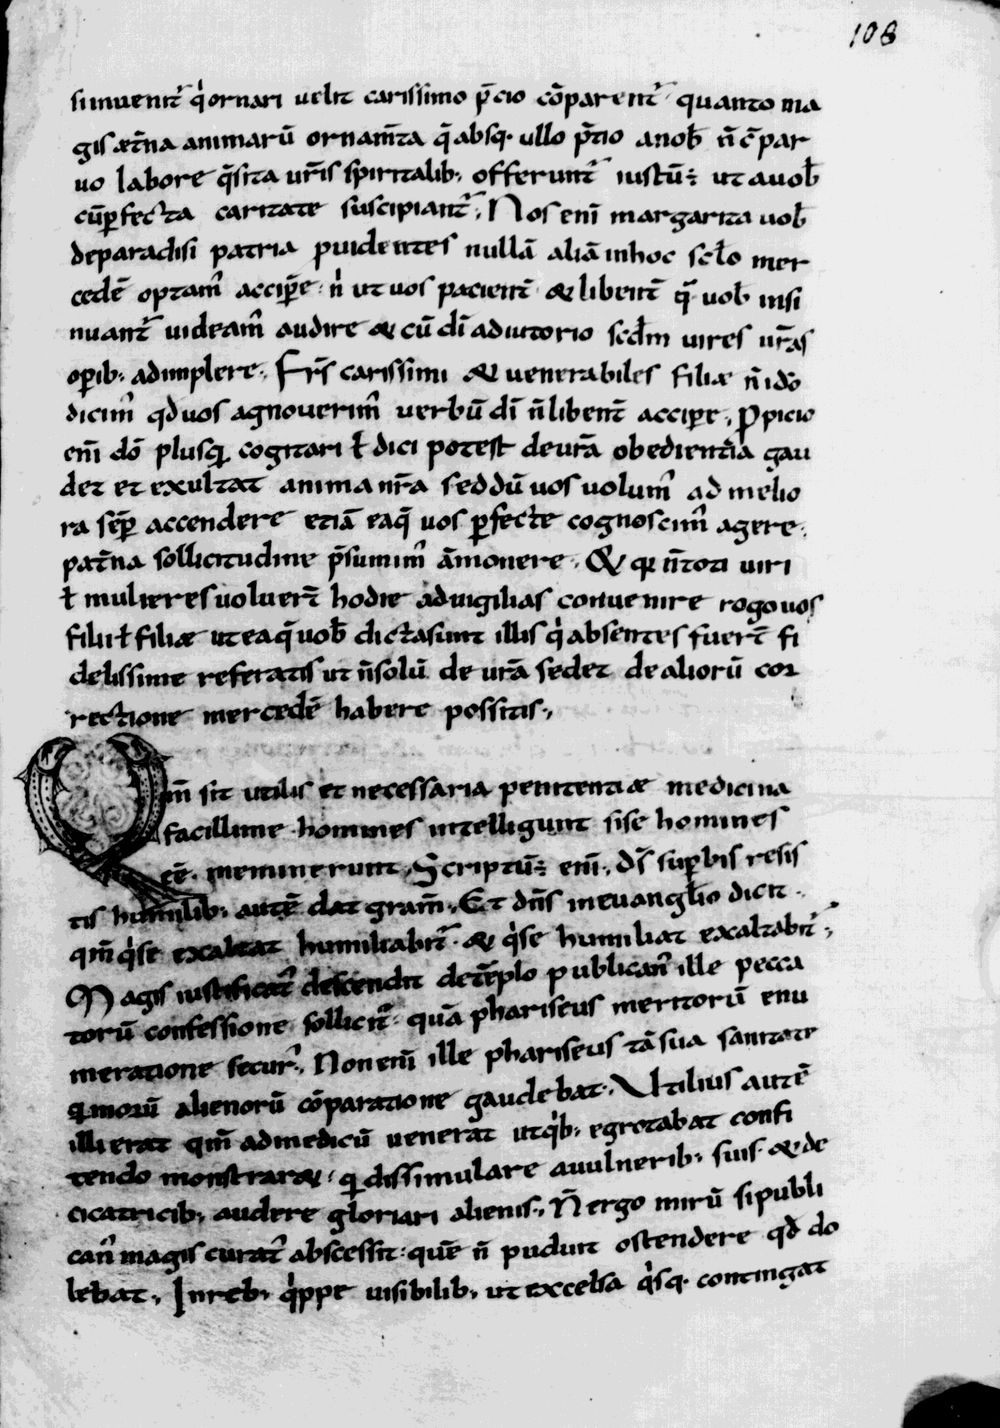 108
si inuenit᷑ q̇ ornari uelit carissimo p̄cio cōparent᷑ quanto ma
gis æt̄na animarū ornam̄ta q̄ absq· ullo p̄tio a nob̄ n̄ c̄ par
uo labore q̄sita ur̄is spiritalib; offerunt᷑ iustū ÷ ut a uob̄
cū ꝑfecta caritate suscipiant᷑. Nos eni̅ margarita uob̄
de paradisi patria ꝓuidentes nullā aliā in hoc sc̄lo mer
cedē optam̄ accipe̅ · n̄ ut uos pacient̄ & libent̄ q̄ uob̄ insi
nuant᷑ uideam̄ audire & cū dī adiutorio scd̄m uires ur̄as
oꝑib; adimplere. Fr̄s carissimi & uenerabiles filiæ n̄ idō
dicim̄ qđ uos agnouerim̄ uerbū dī n̄ libent̄ accipe. Ꝓpicio
eni̅ dō plusq̄ cogitari ł dici potest de ur̄a obedientia gau
det et exultat anima nr̄a sed dū uos uolum̄ ad melio
ra seꝑ accendere etiā ea q̄ uos ꝑfecte cognoscim̄ agere.
pat̄na sollicitudine p̄sumim̄ āmonere. & qꝛ n̄ toti uiri
ł mulieres uoluert̄ hodie ad uigilias conuenire rogo uos
filii ł filiæ ut ea q̄ uob̄ dicta sunt illis q̇ absentes fuert̄ fi
delissime referatis ut n̄ solū de ur̄a sed et de aliorū cor
rectione mercedē habere possitis.
Qm̄ sit utilis et necessaria penitentiæ medicina
facillime homines intelligunt si se homines
eē meminerunt. Scriptū ÷ eni̅. Ds̄ suꝑbis resis
tis humilib; autē dat gram̄. Et dn̄s in euangl̄io dicit.
qm̄ q̇ se exaltat humiliabit᷑ · & q̇ se humiliat exaltabit᷑.
Magis iustificat᷑ descendit de tēplo publican᷒ ille pecca
torū confessione sollicit᷒ · quā phariseus meritorū enu
meratione secur᷒. Non eni̅ ille phariseus tā sua sanitate
qꝛ morū alienorū cōparatione gaudebat. Utilius autē
illi erat qm̄ ad medicū uenerat ut q̇b; egrotabat confi
tendo monstrar& · qꝛ dissimulare a uulnerib; suis & de
cicatricib; audere gloriari alienis. N̄ ergo mirū si publi
can᷒ magis curat᷒ abscessit · quē n̄ puduit ostendere qđ do
lebat. In reb; q̇ppe uisibilib; ut excelsa q̇sq· contingat